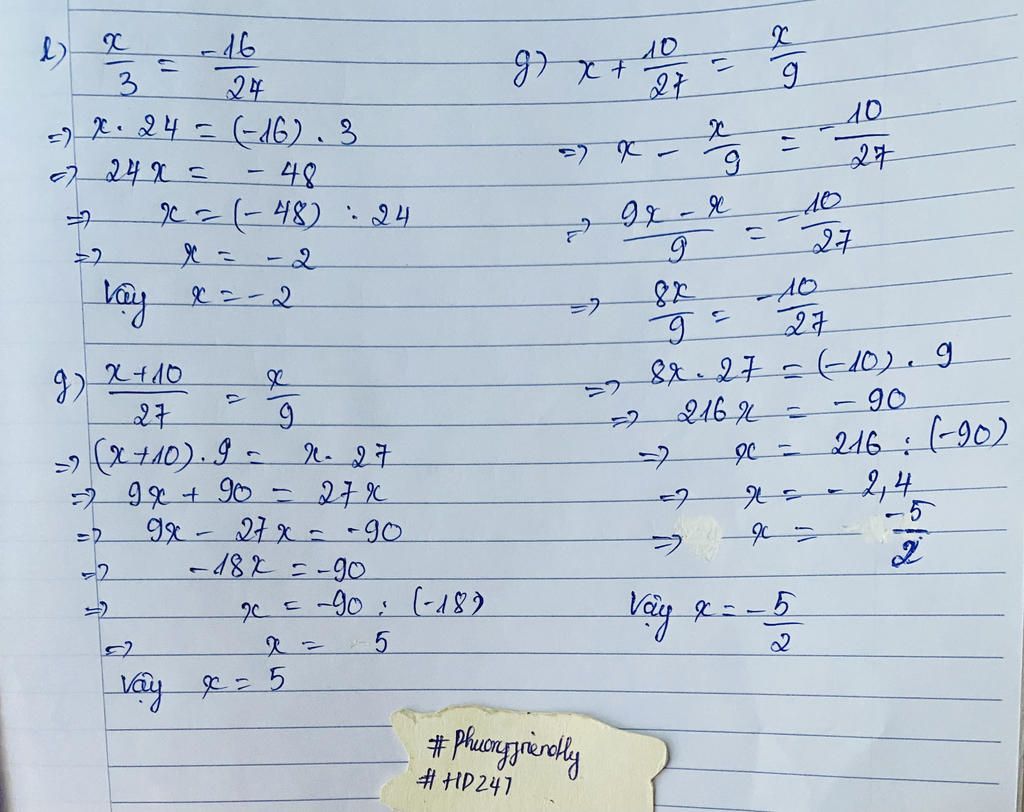 l) x/3 = -16/24
=> x . 24 = (-16) . 3
=> 24x = - 48
=> x = (- 48) : 24
=> x = - 2
Vậy x = - 2
g) (x+10)/27 = x/9
=> (x+10) . 9 = x . 27
=> 9x + 90 = 27x
=> 9x - 27x = -90
=> -18x = -90
=> x = -90 : (-18)
=> x = 5
Vậy x = 5
g) x + 10/27 = x/9
=> x - x/9 = -10/27
=> (9x - x)/9 = -10/27
=> 8x/9 = -10/27
=> 8x . 27 = (-10) . 9
=> 216x = - 90
=> x = 216 : (-90)
=> x = - 2,4
=> x = -5/2
Vậy x = -5/2
#Phuongfriendly
#HD247